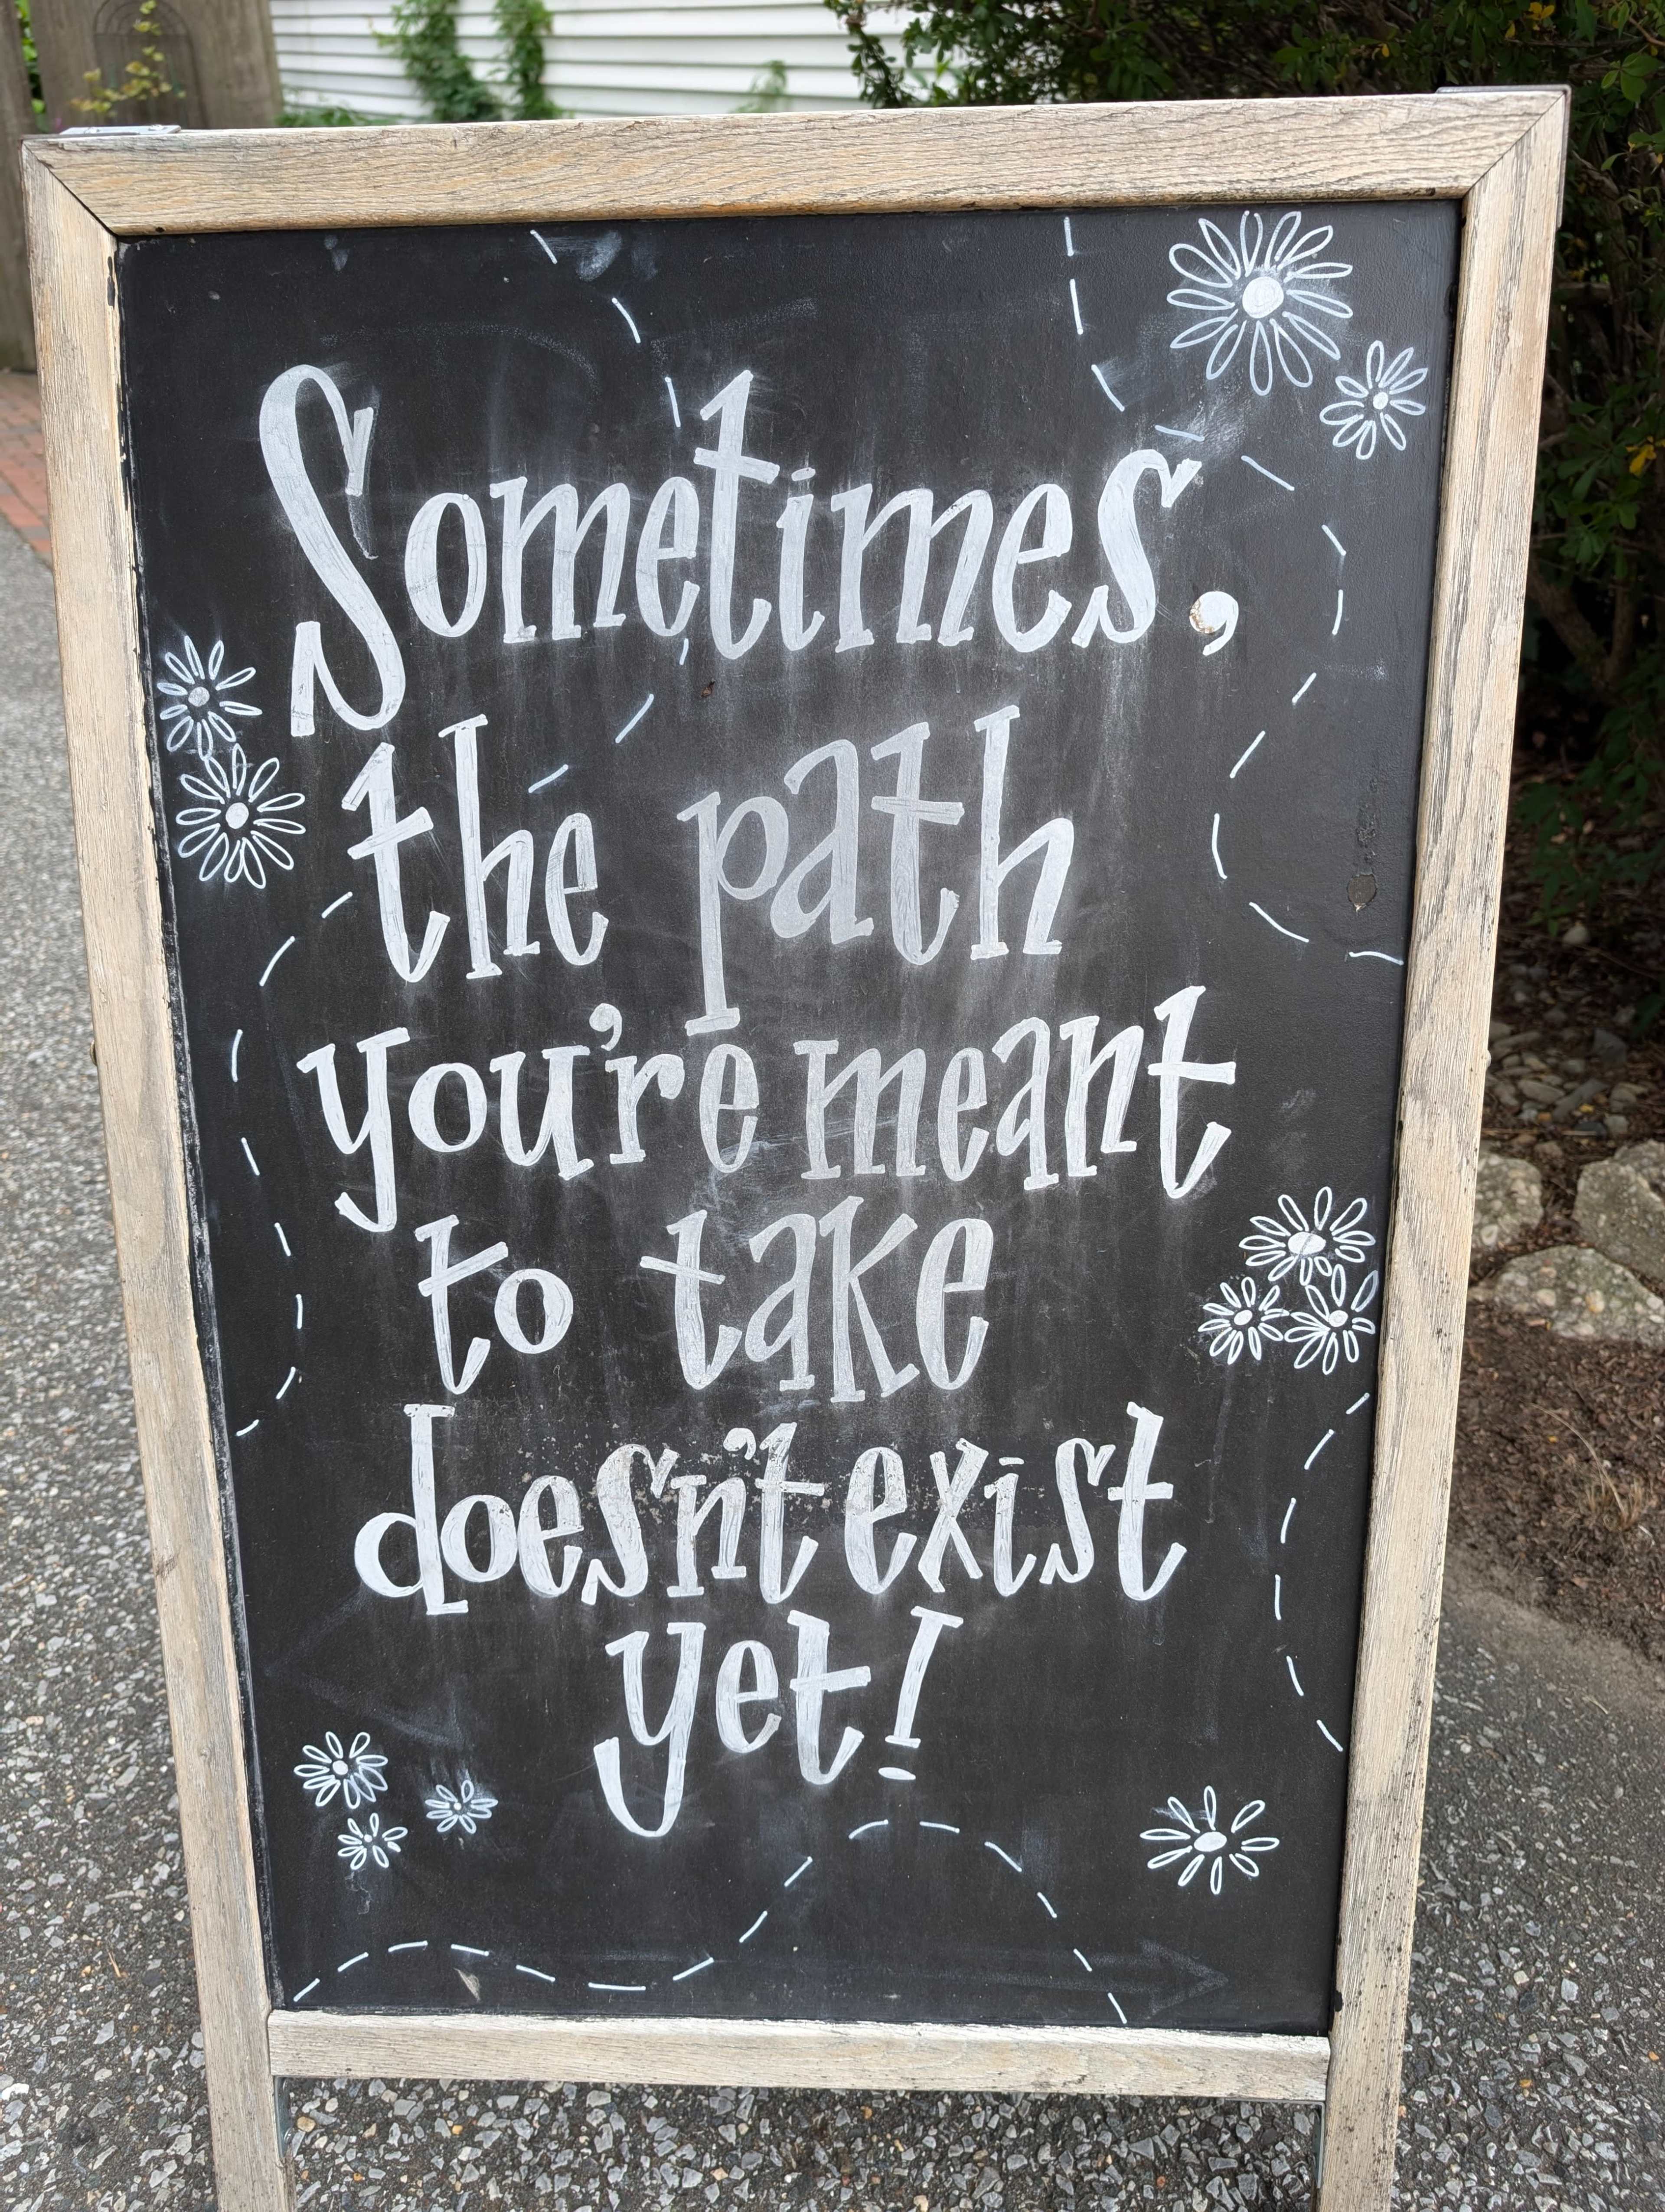 Sometimes,
the path
you're meant
to take
doesn't exist
yet!